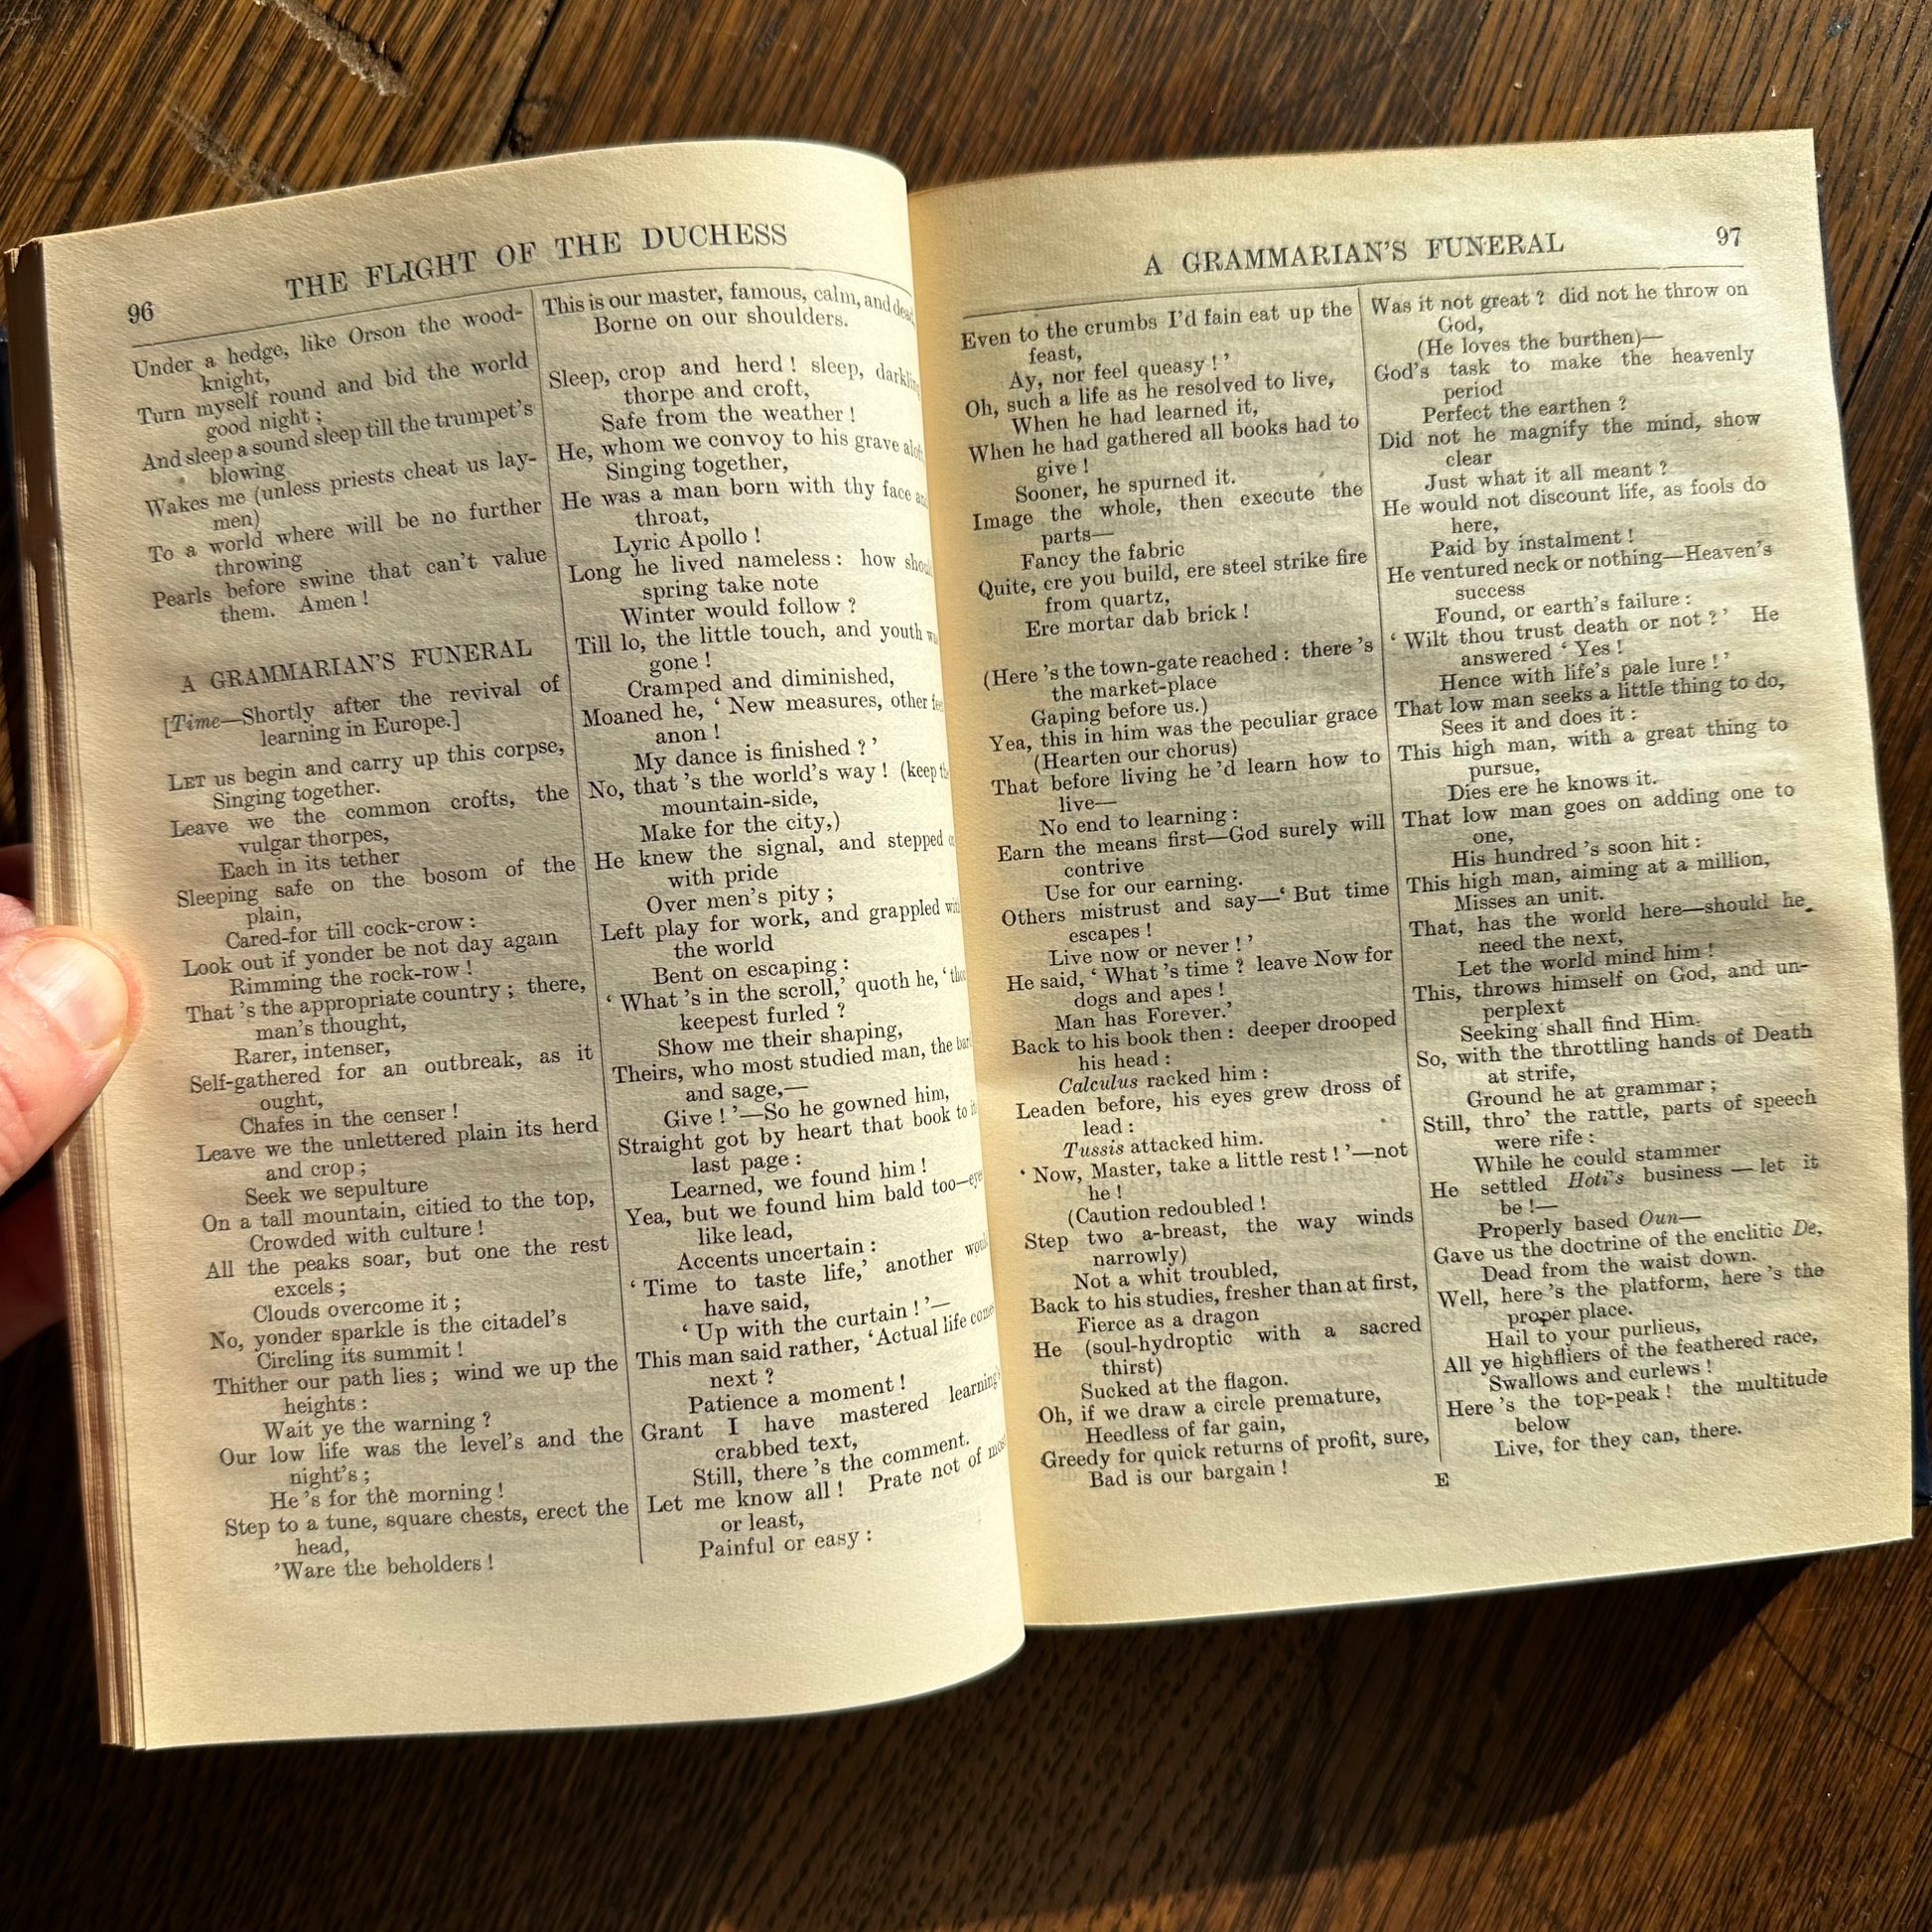 96
THE FLIGHT OF THE DUCHESS
Under a hedge, like Orson the wood-
knight,
Turn myself round and bid the world
good night ;
And sleep a sound sleep till the trumpet's
blowing
Wakes me (unless priests cheat us lay-
men)
To a world where will be no further
throwing
Pearls before swine that can't value
them. Amen !
A GRAMMARIAN'S FUNERAL
[Time—Shortly after the revival of
learning in Europe.]
LET us begin and carry up this corpse,
Singing together.
Leave we the common crofts, the
vulgar thorpes,
Each in its tether
Sleeping safe on the bosom of the
plain,
Cared-for till cock-crow :
Look out if yonder be not day again
Rimming the rock-row !
That 's the appropriate country ; there,
man's thought,
Rarer, intenser,
Self-gathered for an outbreak, as it
ought,
Chafes in the censer !
Leave we the unlettered plain its herd
and crop ;
Seek we sepulture
On a tall mountain, citied to the top,
Crowded with culture !
All the peaks soar, but one the rest
excels ;
Clouds overcome it ;
No, yonder sparkle is the citadel's
Circling its summit !
Thither our path lies ; wind we up the
heights :
Wait ye the warning ?
Our low life was the level's and the
night's ;
He 's for the morning !
Step to a tune, square chests, erect the
head,
'Ware the beholders !
This is our master, famous, calm, and dead,
Borne on our shoulders.
Sleep, crop and herd ! sleep,
thorpe and croft,
Safe from the weather !
He, whom we convoy to his grave
Singing together,
He was a man born with thy face
throat,
Lyric Apollo !
Long he lived nameless : how
spring take note
Winter would follow ?
Till lo, the little touch, and youth
gone !
Cramped and diminished,
Moaned he, ‘ New measures, other
anon !
My dance is finished ? ’
No, that 's the world's way ! (keep
mountain-side,
Make for the city,)
He knew the signal, and stepped
with pride
Over men's pity ;
Left play for work, and grappled
the world
Bent on escaping :
‘ What 's in the scroll,’ quoth he, ‘
keepest furled ?
Show me their shaping,
Theirs, who most studied man, the
and sage,—
Give ! ’—So he gowned him,
Straight got by heart that book to
last page :
Learned, we found him !
Yea, but we found him bald too—
like lead,
Accents uncertain :
‘ Time to taste life,’ another
have said,
‘ Up with the curtain ! ’—
This man said rather, ‘Actual life
next ?
Patience a moment !
Grant I have mastered
crabbed text,
Still, there 's the comment.
Let me know all ! Prate not of
or least,
Painful or easy :
A GRAMMARIAN'S FUNERAL
97
Even to the crumbs I'd fain eat up the
feast,
Ay, nor feel queasy ! ’
Oh, such a life as he resolved to live,
When he had learned it,
When he had gathered all books had to
give !
Sooner, he spurned it.
Image the whole, then execute the
parts—
Fancy the fabric
Quite, ere you build, ere steel strike fire
from quartz,
Ere mortar dab brick !
(Here 's the town-gate reached : there 's
the market-place
Gaping before us.)
Yea, this in him was the peculiar grace
(Hearten our chorus)
That before living he 'd learn how to
live—
No end to learning :
Earn the means first—God surely will
contrive
Use for our earning.
Others mistrust and say—‘ But time
escapes !
Live now or never ! ’
He said, ‘ What 's time ? leave Now for
dogs and apes !
Man has Forever.’
Back to his book then : deeper drooped
his head :
Calculus racked him :
Leaden before, his eyes grew dross of
lead :
Tussis attacked him.
‘ Now, Master, take a little rest ! ’—not
he !
(Caution redoubled !
Step two a-breast, the way winds
narrowly)
Not a whit troubled,
Back to his studies, fresher than at first,
Fierce as a dragon
He (soul-hydroptic with a sacred
thirst)
Sucked at the flagon.
Oh, if we draw a circle premature,
Heedless of far gain,
Greedy for quick returns of profit, sure,
Bad is our bargain !
Was it not great ? did not he throw on
God,
(He loves the burthen)—
God's task to make the heavenly
period
Perfect the earthen ?
Did not he magnify the mind, show
clear
Just what it all meant ?
He would not discount life, as fools do
here,
Paid by instalment !
He ventured neck or nothing—Heaven's
success
Found, or earth's failure :
‘ Wilt thou trust death or not ? ’ He
answered ‘ Yes !
Hence with life's pale lure ! ’
That low man seeks a little thing to do,
Sees it and does it :
This high man, with a great thing to
pursue,
Dies ere he knows it.
That low man goes on adding one to
one,
His hundred 's soon hit :
This high man, aiming at a million,
Misses an unit.
That, has the world here—should he
need the next,
Let the world mind him !
This, throws himself on God, and un-
perplext
Seeking shall find Him.
So, with the throttling hands of Death
at strife,
Ground he at grammar ;
Still, thro' the rattle, parts of speech
were rife :
While he could stammer
He settled Hoti's business — let it
be !—
Properly based Oun—
Gave us the doctrine of the enclitic De,
Dead from the waist down.
Well, here 's the platform, here 's the
proper place.
Hail to your purlieus,
All ye highfliers of the feathered race,
Swallows and curlews !
Here 's the top-peak ! the multitude
below
Live, for they can, there.
E